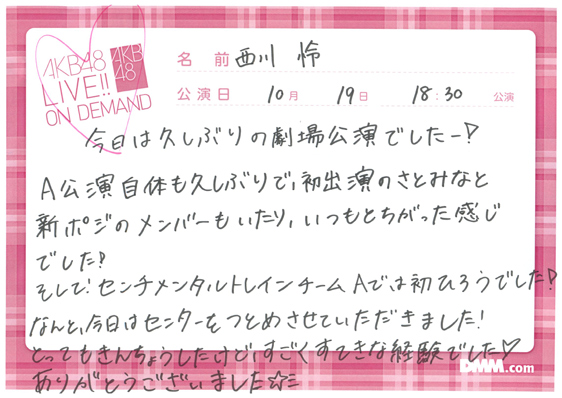 AKB48
LIVE!!
ON DEMAND
AKB
48
名 前 西川 怜
公演日 10月 19日 18:30 公演
今日は久しぶりの劇場公演でしたー!
A公演自体も久しぶりで、初出演のさとみなと
新ポジのメンバーもいたり、いつもとちがった感じ
でした!
そして!センチメンタルトレインチームAでは初ひろうでした!
なんと、今日はセンターをつとめさせていただきました!
とってもきんちょうしたけど、すごくすてきな経験でした♡
ありがとうございました☆ミ
DMM.com